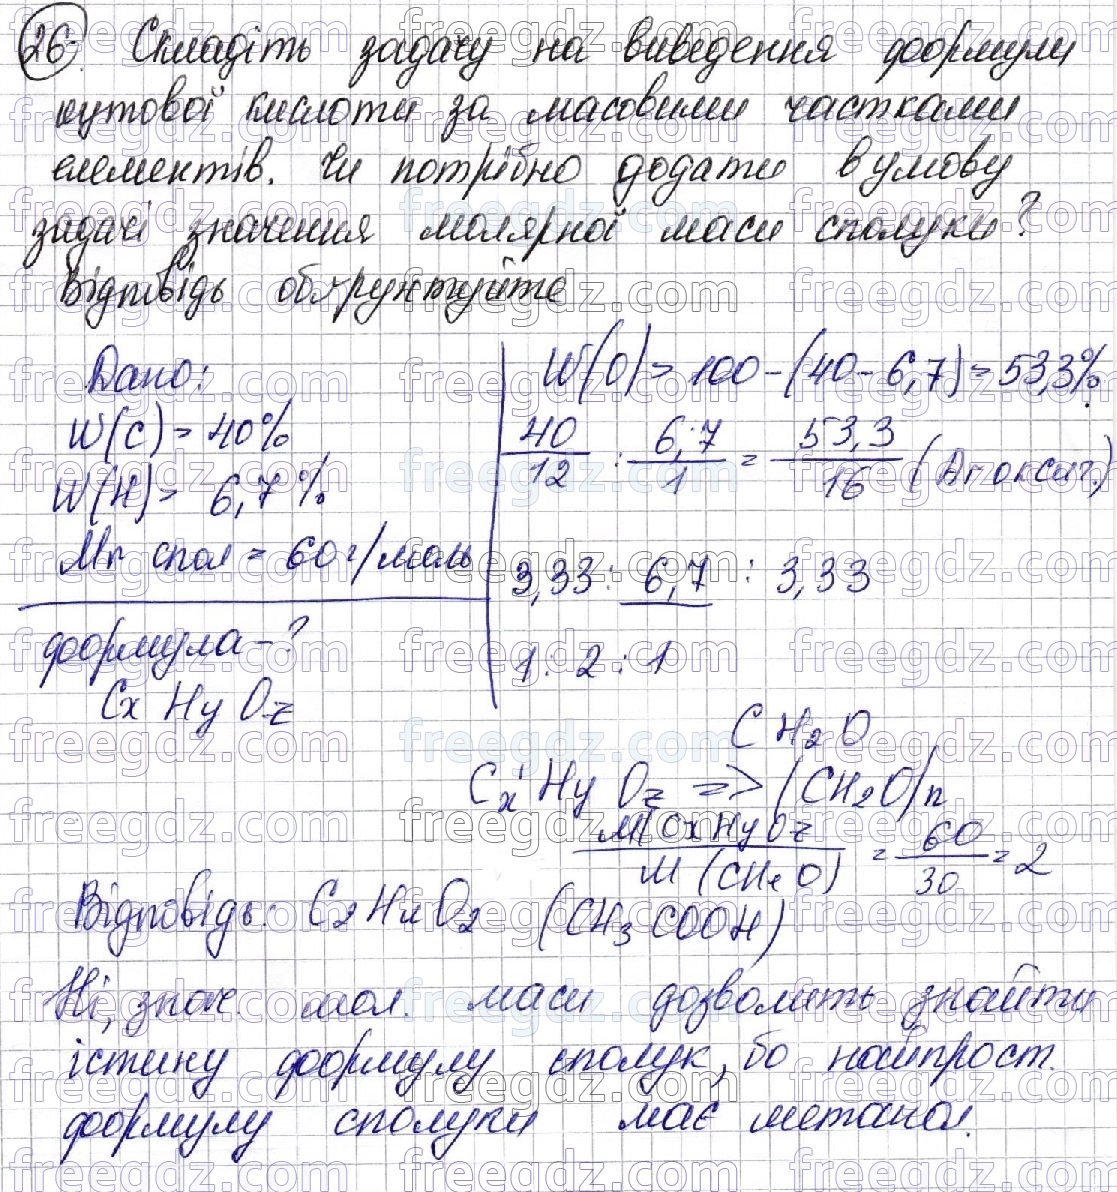 26. Складіть задачу на виведення формули
оцтової кислоти за масовими частками
елементів. Чи потрібно додати в умову
задачі значення молярної маси сполуки?
Відповідь обґрунтуйте
Дано:
W(C) = 40%
W(H) = 6,7%
Mr спол = 60 г/моль
формула - ?
Cx Hy Oz
W(O) = 100 - (40 - 6,7) = 53,3%
40/12 : 6,7/1 = 53,3/16 (Ar оксиг.)
3,33 : 6,7 : 3,33
1 : 2 : 1
CH2O
Cx Hy Oz => (CH2O)n
M(CxHyOz)/M(CH2O) = 60/30 = 2
Відповідь: C2H4O2 (CH3COOH)
Ні, знач. мол. маси дозволить знайти
істину формулу сполук, бо найпрост.
формулу сполуки має метанал.
freegdz.com